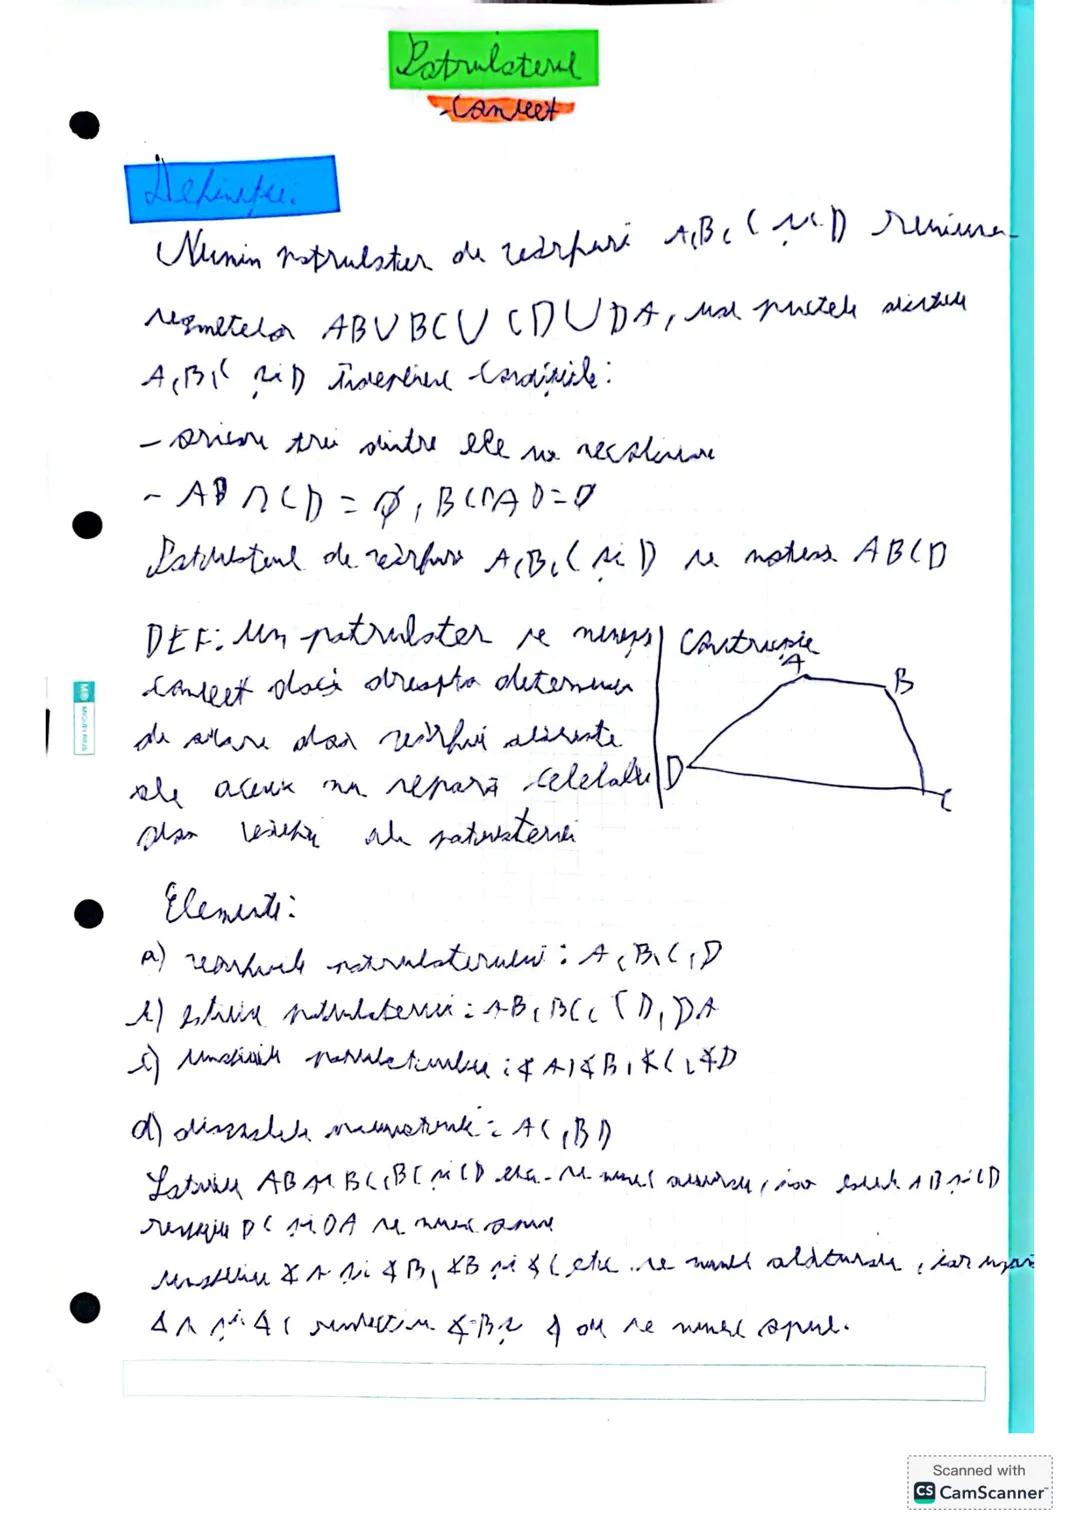 Patrulaterul
convex
Definiție:
Numim patrulater de vârfuri A,B,C și D reuniunea
segmetelor AB∪BC∪CD∪DA, unde punctele distincte
A,B,C și D îndeplinesc condițiile:
- oricare trei dintre ele nu necoliniare
- AB∩CD=∅, BC∩AD=∅
Patrulaterul de vârfuri A,B,C și D se notează ABCD
DEF: Un patrulater se numește
convex dacă dreapta determinată
de oricare două vârfuri alăturate
ale acestuia nu separă celelalte
două vârfuri ale patrulaterului
Construcție
A
B
D
C
Elemente:
a) vârfurile patrulaterului: A,B,C,D
b) laturile patrulaterului: AB,BC,CD,DA
c) unghiurile patrulaterului: ∢A,∢B,∢C,∢D
d) diagonalele patrulaterului: AC,BD
Laturile AB și BC, BC și CD etc. se numesc alăturate, iar laturile AB și CD
respectiv BC și DA se numesc opuse
Unghiurile ∢A și ∢B, ∢B și ∢C etc. se numesc alăturate, iar
∢A și ∢C respectiv ∢B și ∢D se numesc opuse.
MIQUELRIUS
Scanned with
CS CamScanner